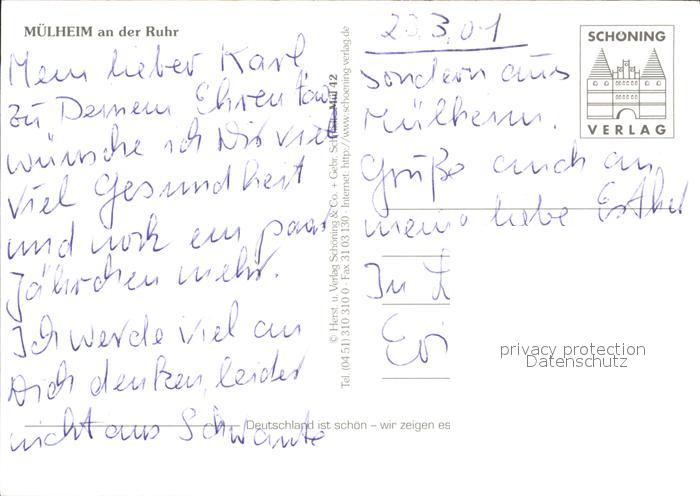 MÜLHEIM an der Ruhr
Mein lieber Karl
zu Deinem Ehrentag
wünsche ich Dir viel
viel Gesundheit
und noch ein paar
Jährchen mehr.
Ich werde viel an
Dich denken, leider
nicht aus Schwante
© Herst. u. Verlag Schöning & Co. + Gebr. Mül 42
Tel. (04 51) 310 310 0 · Fax 31 03 130 · Internet: http://www.schoening-verlag.de
Deutschland ist schön – wir zeigen es
3.01
sondern aus
Mülheim.
Grüße auch an
meine liebe Esther
In L
Evi
SCHÖNING
VERLAG
privacy protection
Datenschutz